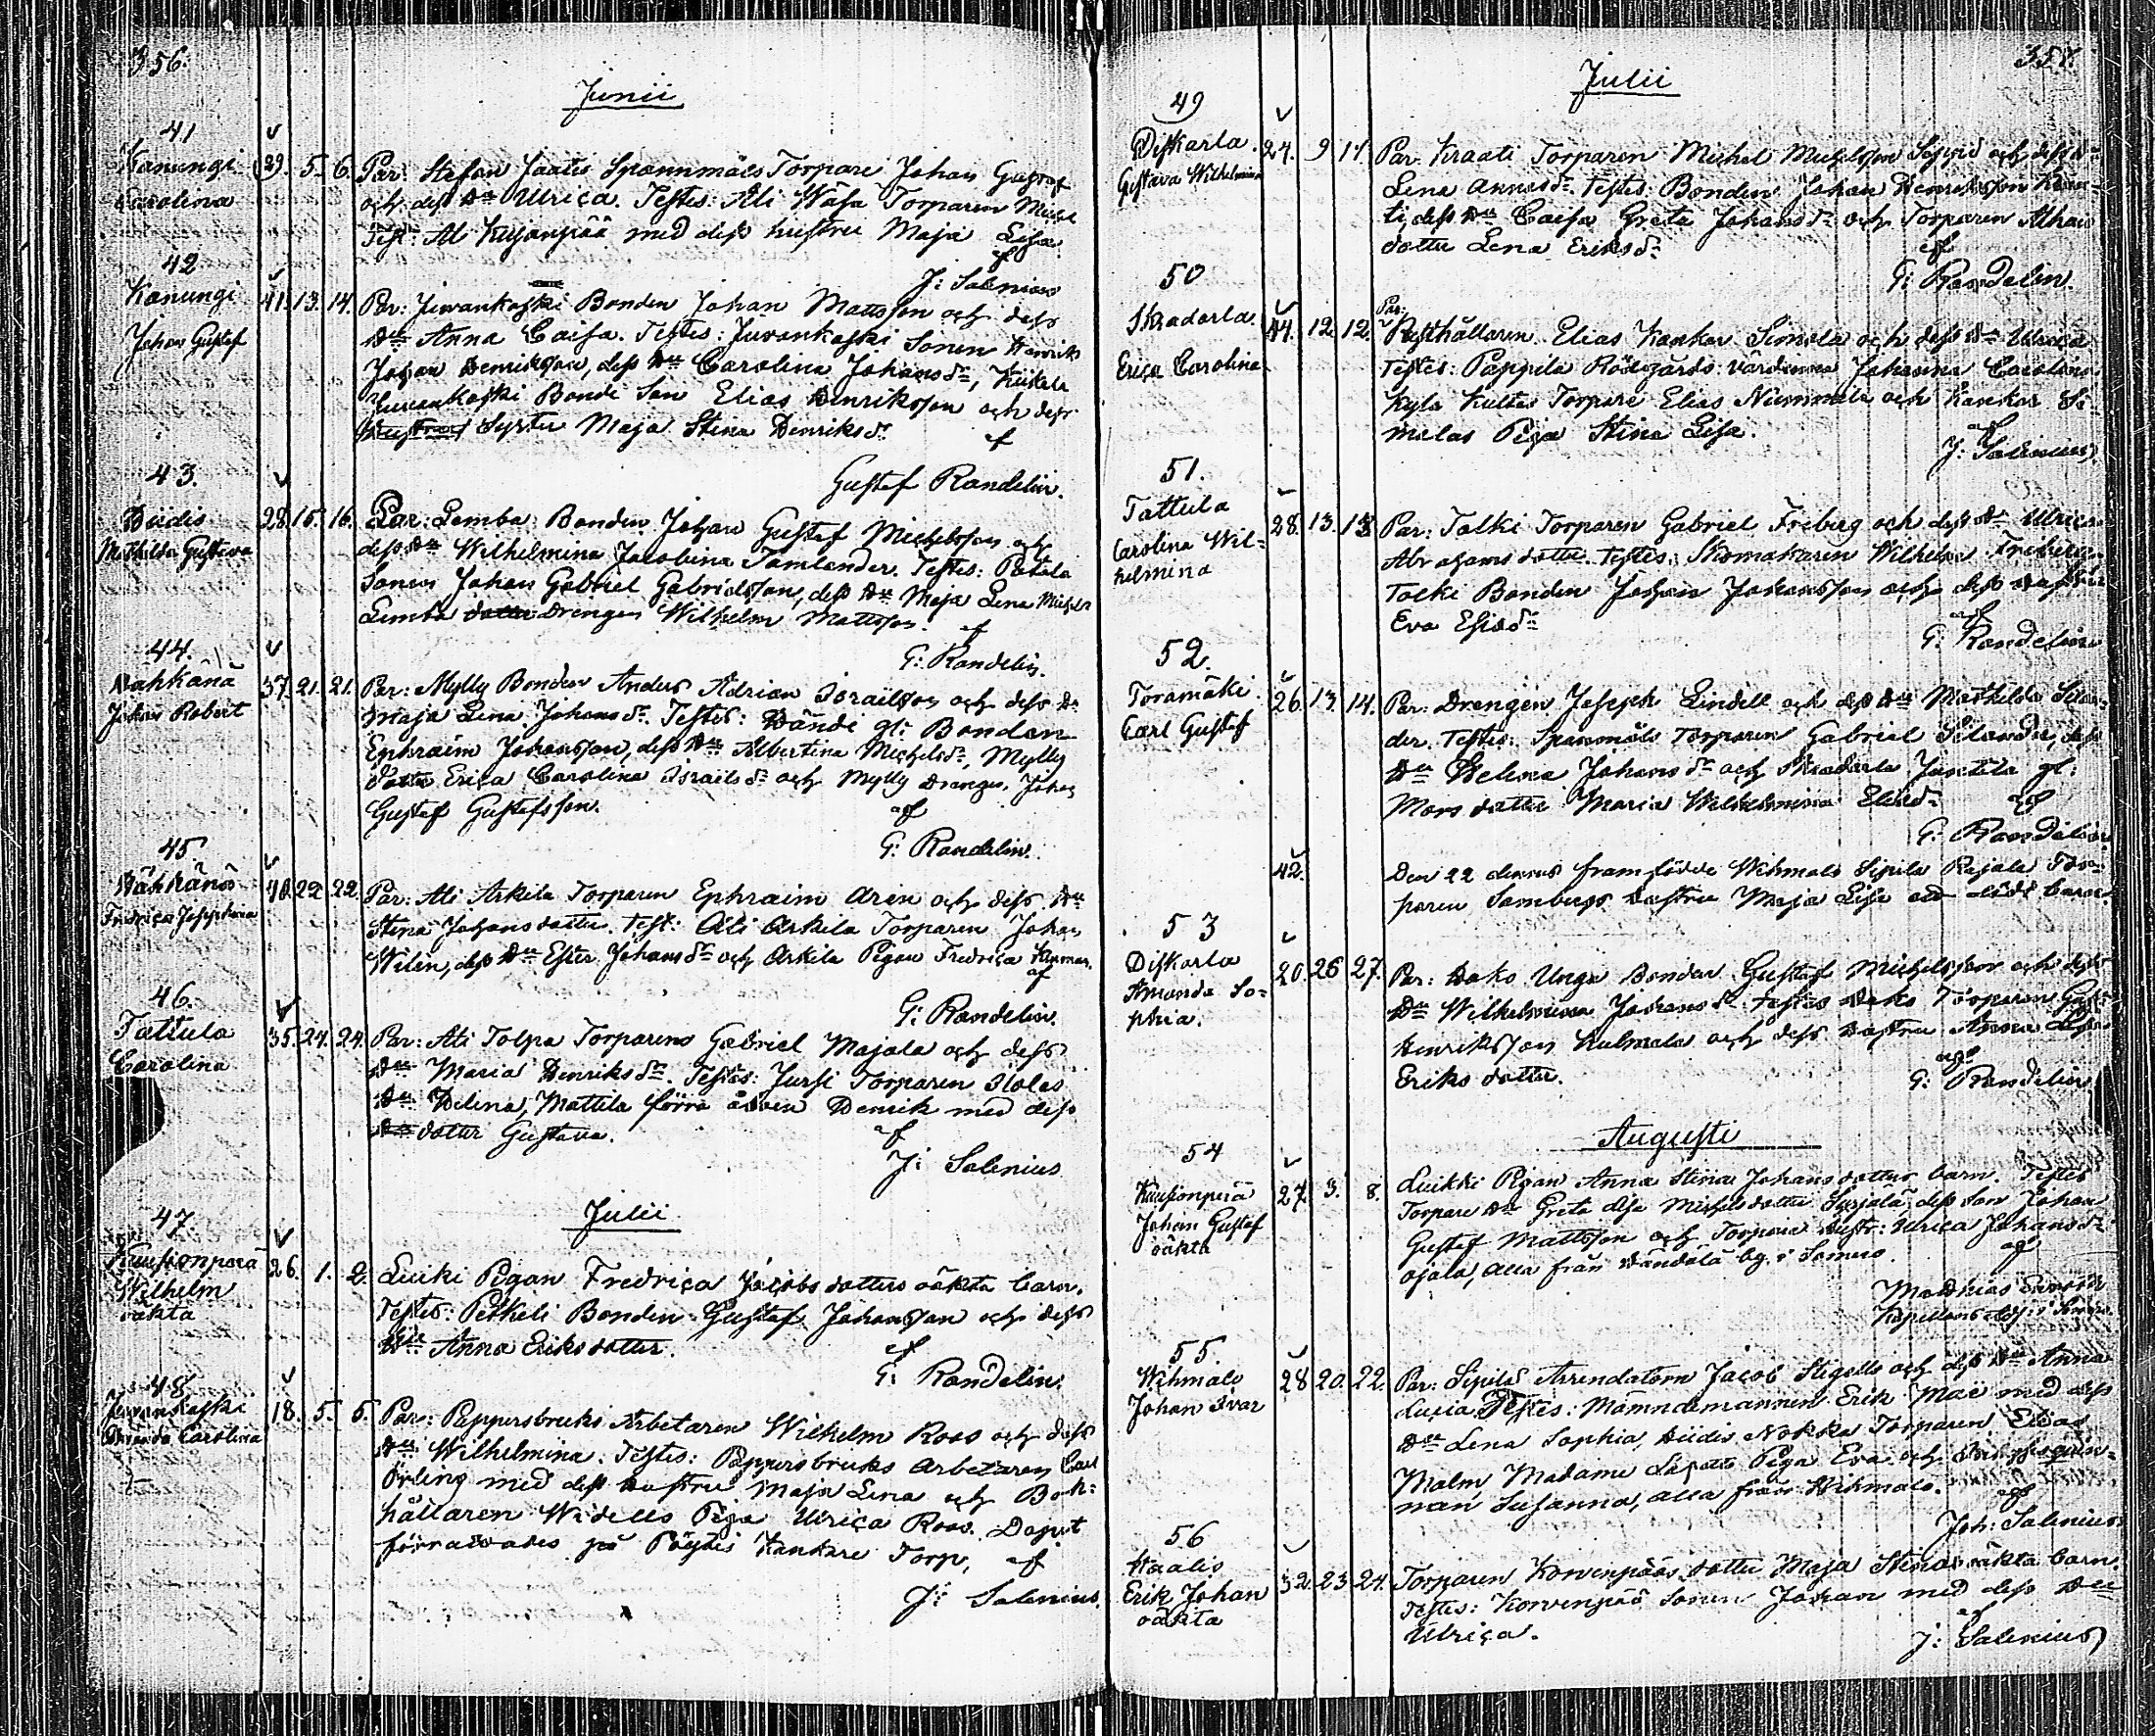 356.
Junii
41
Kanungi 29. 5. 6. Par: Stefan Jaatis Spannmåls Torpare Johan
Carolina och dess Hu Ulrica. Testes: Ali Wäha Torparen
Test: Al Kujanpää med dess hustru Maja Lisa.
af
J: Salenius
42
Kanungi 41. 13. 14. Par: Juvankoski Bonden Johan Mattsson och dess
Johan Gustaf Hu Anna Caisa. Testes: Juvankoski Sonen Henrik
Johan Henriksson, dess Hu Carolina Johansdr,
Juvankoski Bonde Son Elias Henriksson och dess
Syster Maja Stina Henriksdr
af
Gustaf Randelin.
43.
Hiidis 28. 15. 16. Par: Lemba Bonden Johan Gustaf Michelsson och
Mathilda Gustava dess Hu Wilhelmina Jacobina Tamlander. Testes:
Sonen Johan Gabriel Gabrielsson, dess Hu Maja Lena
Lemba Drengen Wilhelm Mattsson. af
G: Randelin.
44.
Hähkänä 37. 21. 21. Par: Mylly Bonden Anders Adrian Israelsson och dess Hu
Johan Robert Maja Lena Johansdr. Testes: Händi gl: Bonden
Ephraim Johansson, dess Hu Albertina Michelsdr, Mylly
Dotter Erica Carolina Israelsdr och Mylly Drengen, Johan
Gustaf Gustafsson. af
G: Randelin.
45
Hähkänä 40. 22. 22. Par: Ali Arkila Torparen Ephraim Aren och dess Hu
Fredrica Josephina Stina Johansdotter. Test: Ali Arkila Torparen Johan
Wilen, dess Hu Ester Johansdr och Arkila Pigan Fredrica
af
G: Randelin.
46.
Tattula 35. 24. 24. Par: Ali Tolpa Torparens Gabriel Majala och dess
Carolina Hu Maria Henriksdr. Testes: Jussi Torparen
Hu Helena, Mattila förra Henrik med dess
dotter Gustava. af
J: Salenius
Julii
47.
Kuusionperä 26. 1. 2. Luiki Pigan Fredrica Jacobs dotters oäkta barn.
Wilhelm Testes: Petkeli Bonden Gustaf Johansson och dess
oäkta Hu Anna Eriksdotter. af
G: Randelin.
48.
Juvankoski 18. 5. 5. Par: Pappersbruks Arbetaren Wilhelm Roos och dess
Amanda Carolina Hu Wilhelmina. Testes: Pappersbruks Arbetaren Carl
Örling med dess Hustru Maja Lena och Bok:
hållaren Widells Piga Ulrica Roos. Dopet
förrattades på Pöytis Kankare Torp, af
J: Salenius.
357.
Julii
49
Diskarla. 24. 9 11. Par. Kraati Torparen Michel Michelsson och dess Hu
Gustava Wilhelmina Lena Annasdr. Testes: Bonden Johan Henriksson
ti, dess Hu Caisa Greta Johansdr och Torparen
dotter Lena Eriksdr
af
G: Randelin.
50
Skradarla. 44. 12. 12. Par. Rusthållaren Elias Kankar Simola och dess Hu Ulrica
Erica Carolina Testes: Pappila Rödgårds värdinna Johanna Carolina
Kyla Kultes Torpare Elias Nummela och Kankar Si-
molas Piga Stina Lisa.
af
J: Salenius
51.
Tattula 28. 13. 13 Par: Talki Torparen Gabriel Friberg och dess Hu Ulrica
Carolina Wil- Abrahams dotter. Testes: Skomakaren Wilhelm Friberg
helmina Tolki Bonden Johan Johansson och dess Hustru
Eva Eliasdr
af
G: Randelin
52.
Toramäki 26. 13. 14. Par: Drengen Joseph Lindell och dess Hu Mathilda Selan-
Carl Gustaf der. Testes: Spanmåls Torparen Gabriel Selander, dess
Hu Helena Johansdr och Skradarla Jussila gl:
Mors dotter Maria Wilhelmina Eliaedr
af
G: Randelin
42. Den 22 dennes framfödde Wihmalo Sipila Rajala Tor-
paren Sambergs hustru Maja Lisa ett dödt barn.
53
Diskarla 20. 26 27. Par: Hako Unga Bonden Gustaf Michelsson och dess
Amanda So- Hu Wilhelmina Johansdr. Testes Hako Torparen
phia. Henriksson Kulmala och dess Hustru Anna Lisa
Eriks dotter. af
G: Randelin
Augusti
54
Kuusionperä 27. 3. 8. Luikki Pigan Anna Stina Johans dotters barn. Testes
Johan Gustaf Torpare Hu Greta Lisa Michelsdotter dess son Johan
oäkta Gustaf Mattsson och Torpare Hustr: Ulrica Johansdr
ojala, alla från by i Somero. af
Mathias
Kapellans i Somero.
55.
Wihmalo 28 20. 22. Par: Sipilä Arrendatorn Jacob Stigells och dess Hu Anna
Johan Ivar Lucia. Testes: Nämndemannen Erik med dess
Hu Lena Sophia, Hiidis Nokka Torparen Elias
Malm Madame Piga Eva och
man Susanna, alla från Wihmalo. af
Joh: Salenius
56
Haalis 32. 23. 24. Torparen Korvenpääs dotter Maja Stinas oäkta barn.
Erik Johan Testes: Korvenpää Sonen Johan med dess Hu
oäkta Ulrica.
af
J: Salenius